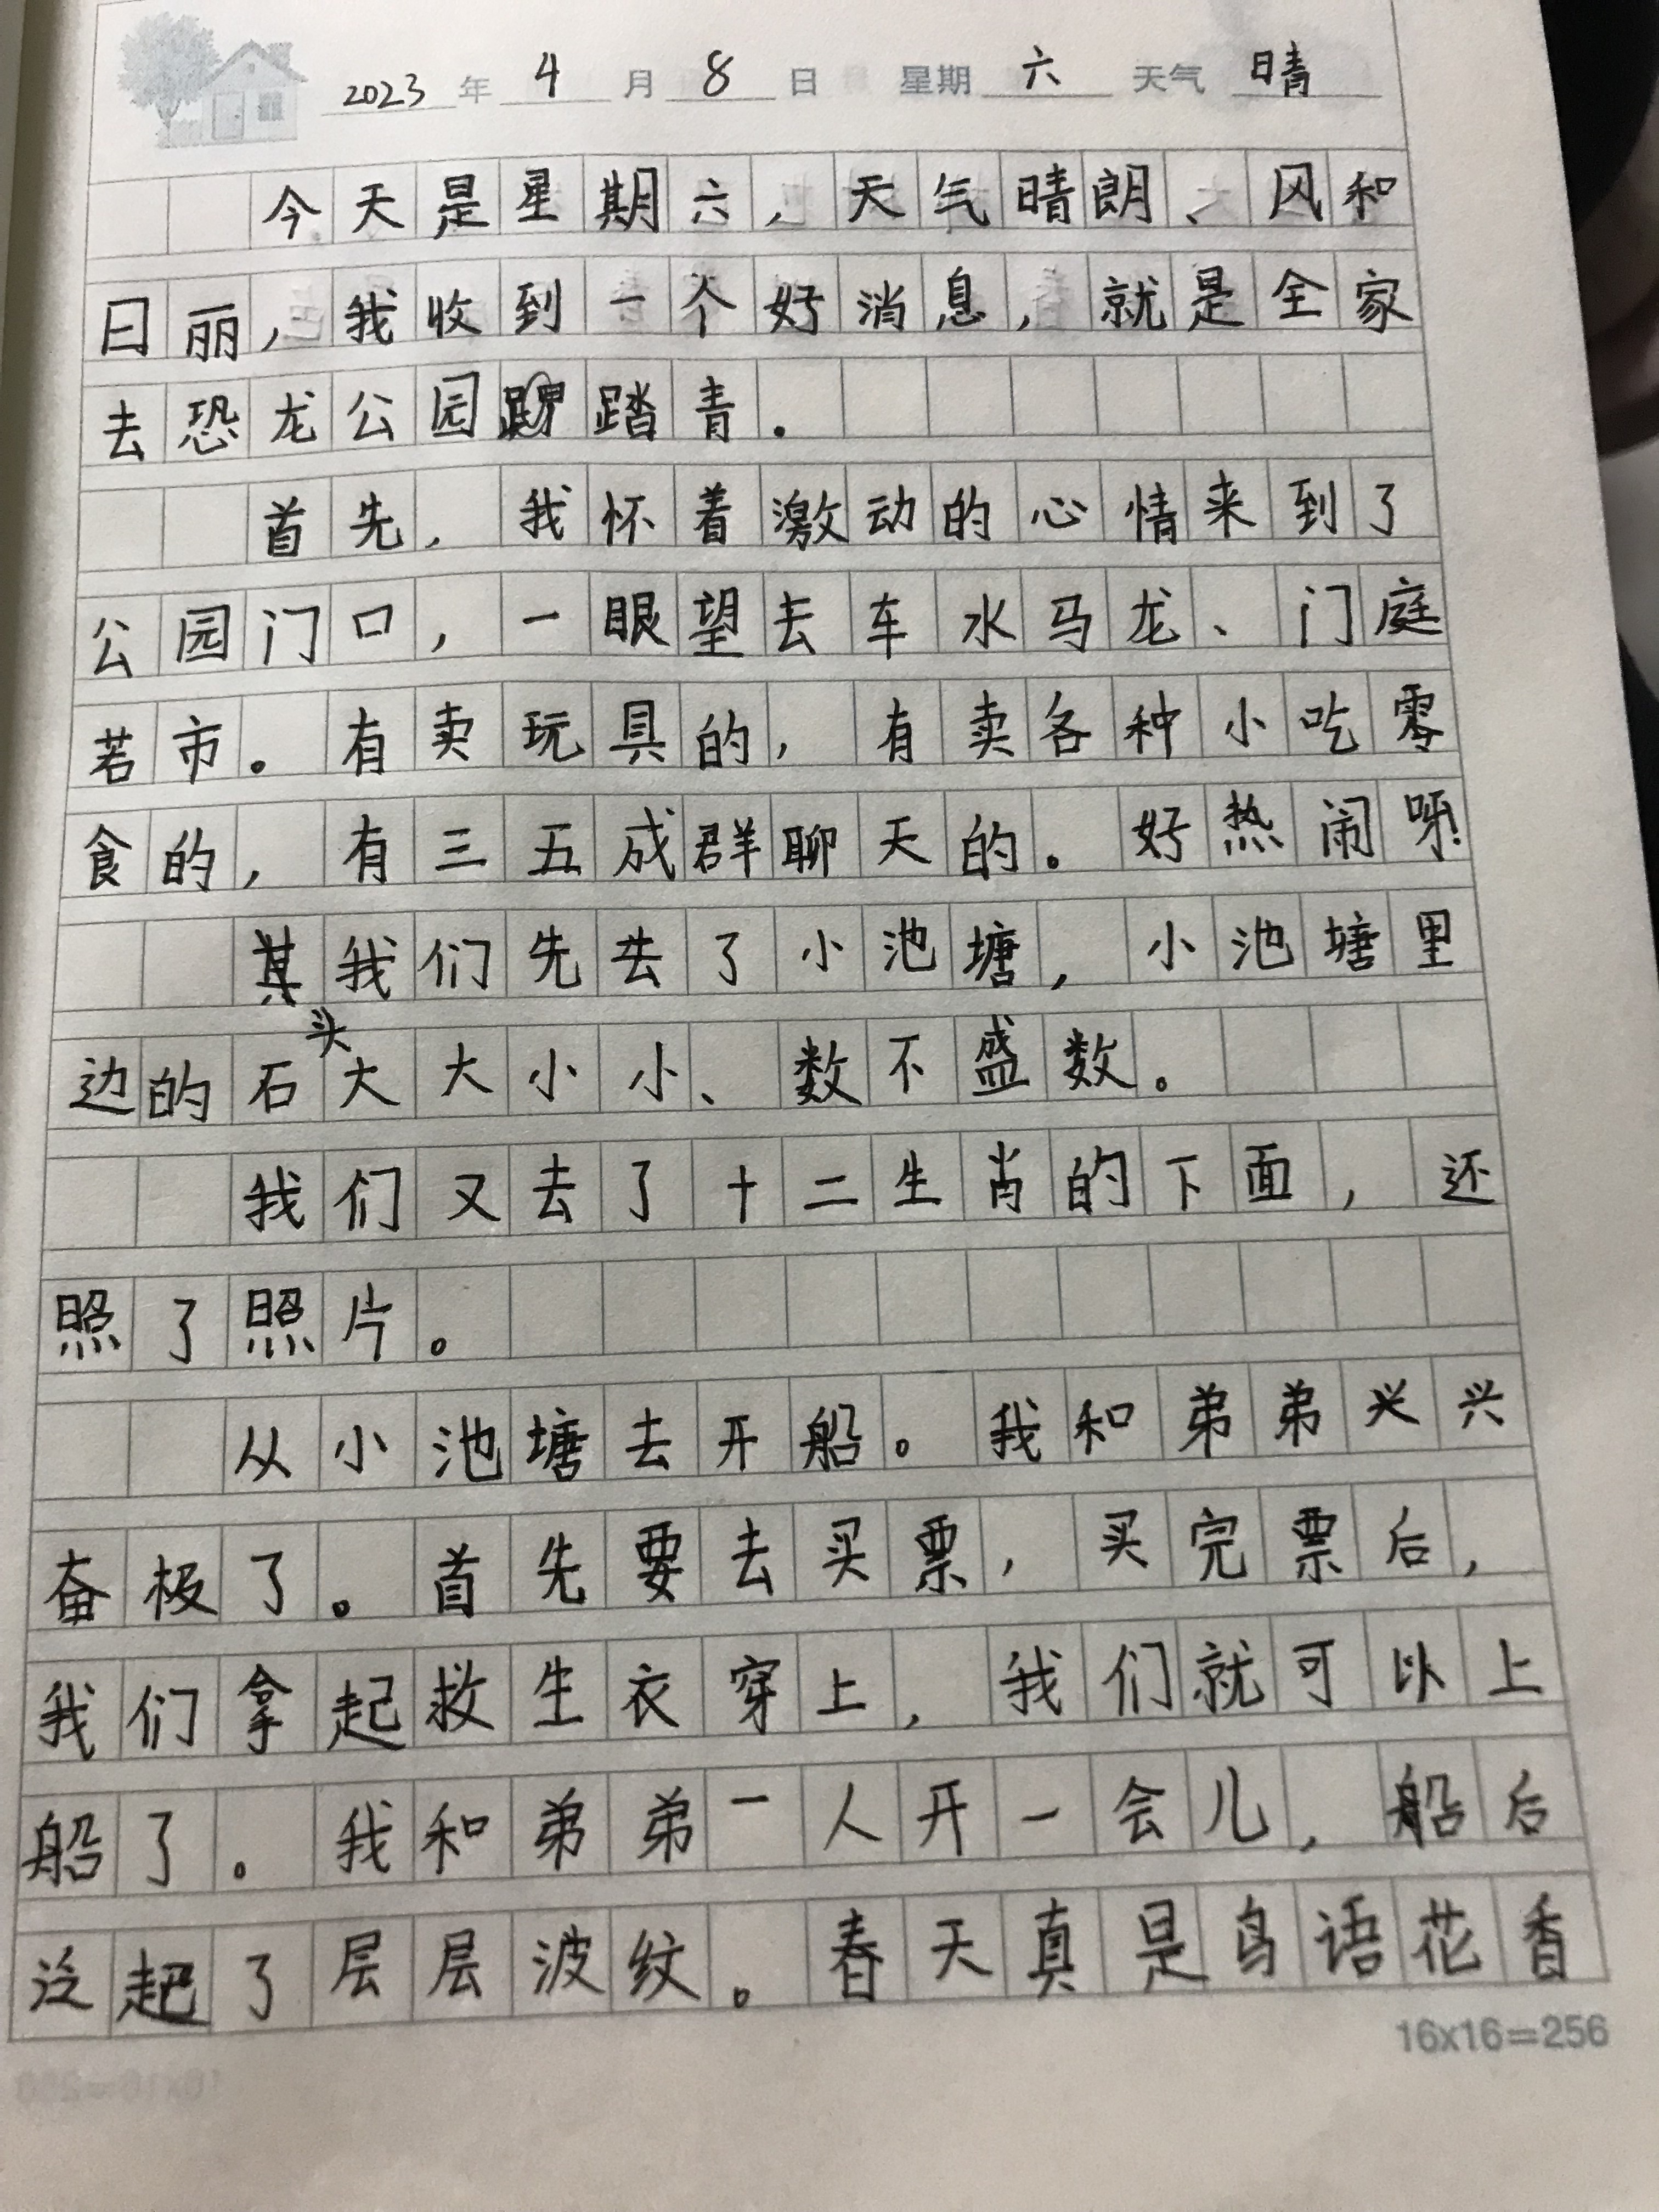 2023年4月8日 星期六 天气晴
今天是星期六，天气晴朗、风和
日丽，我收到一个好消息，就是全家
去恐龙公园踏青。
首先，我怀着激动的心情来到了
公园门口，一眼望去车水马龙、门庭
若市。有卖玩具的，有卖各种小吃零
食的，有三五成群聊天的。好热闹呀！
其我们先去了小池塘，小池塘里
边的石头大大小小、数不盛数。
我们又去了十二生肖的下面，还
照了照片。
从小池塘去开船。我和弟弟兴兴
奋极了。首先要去买票，买完票后，
我们拿起救生衣穿上，我们就可以上
船了。我和弟弟一人开一会儿，船后
泛起了层层波纹。春天真是鸟语花香
16x16=256